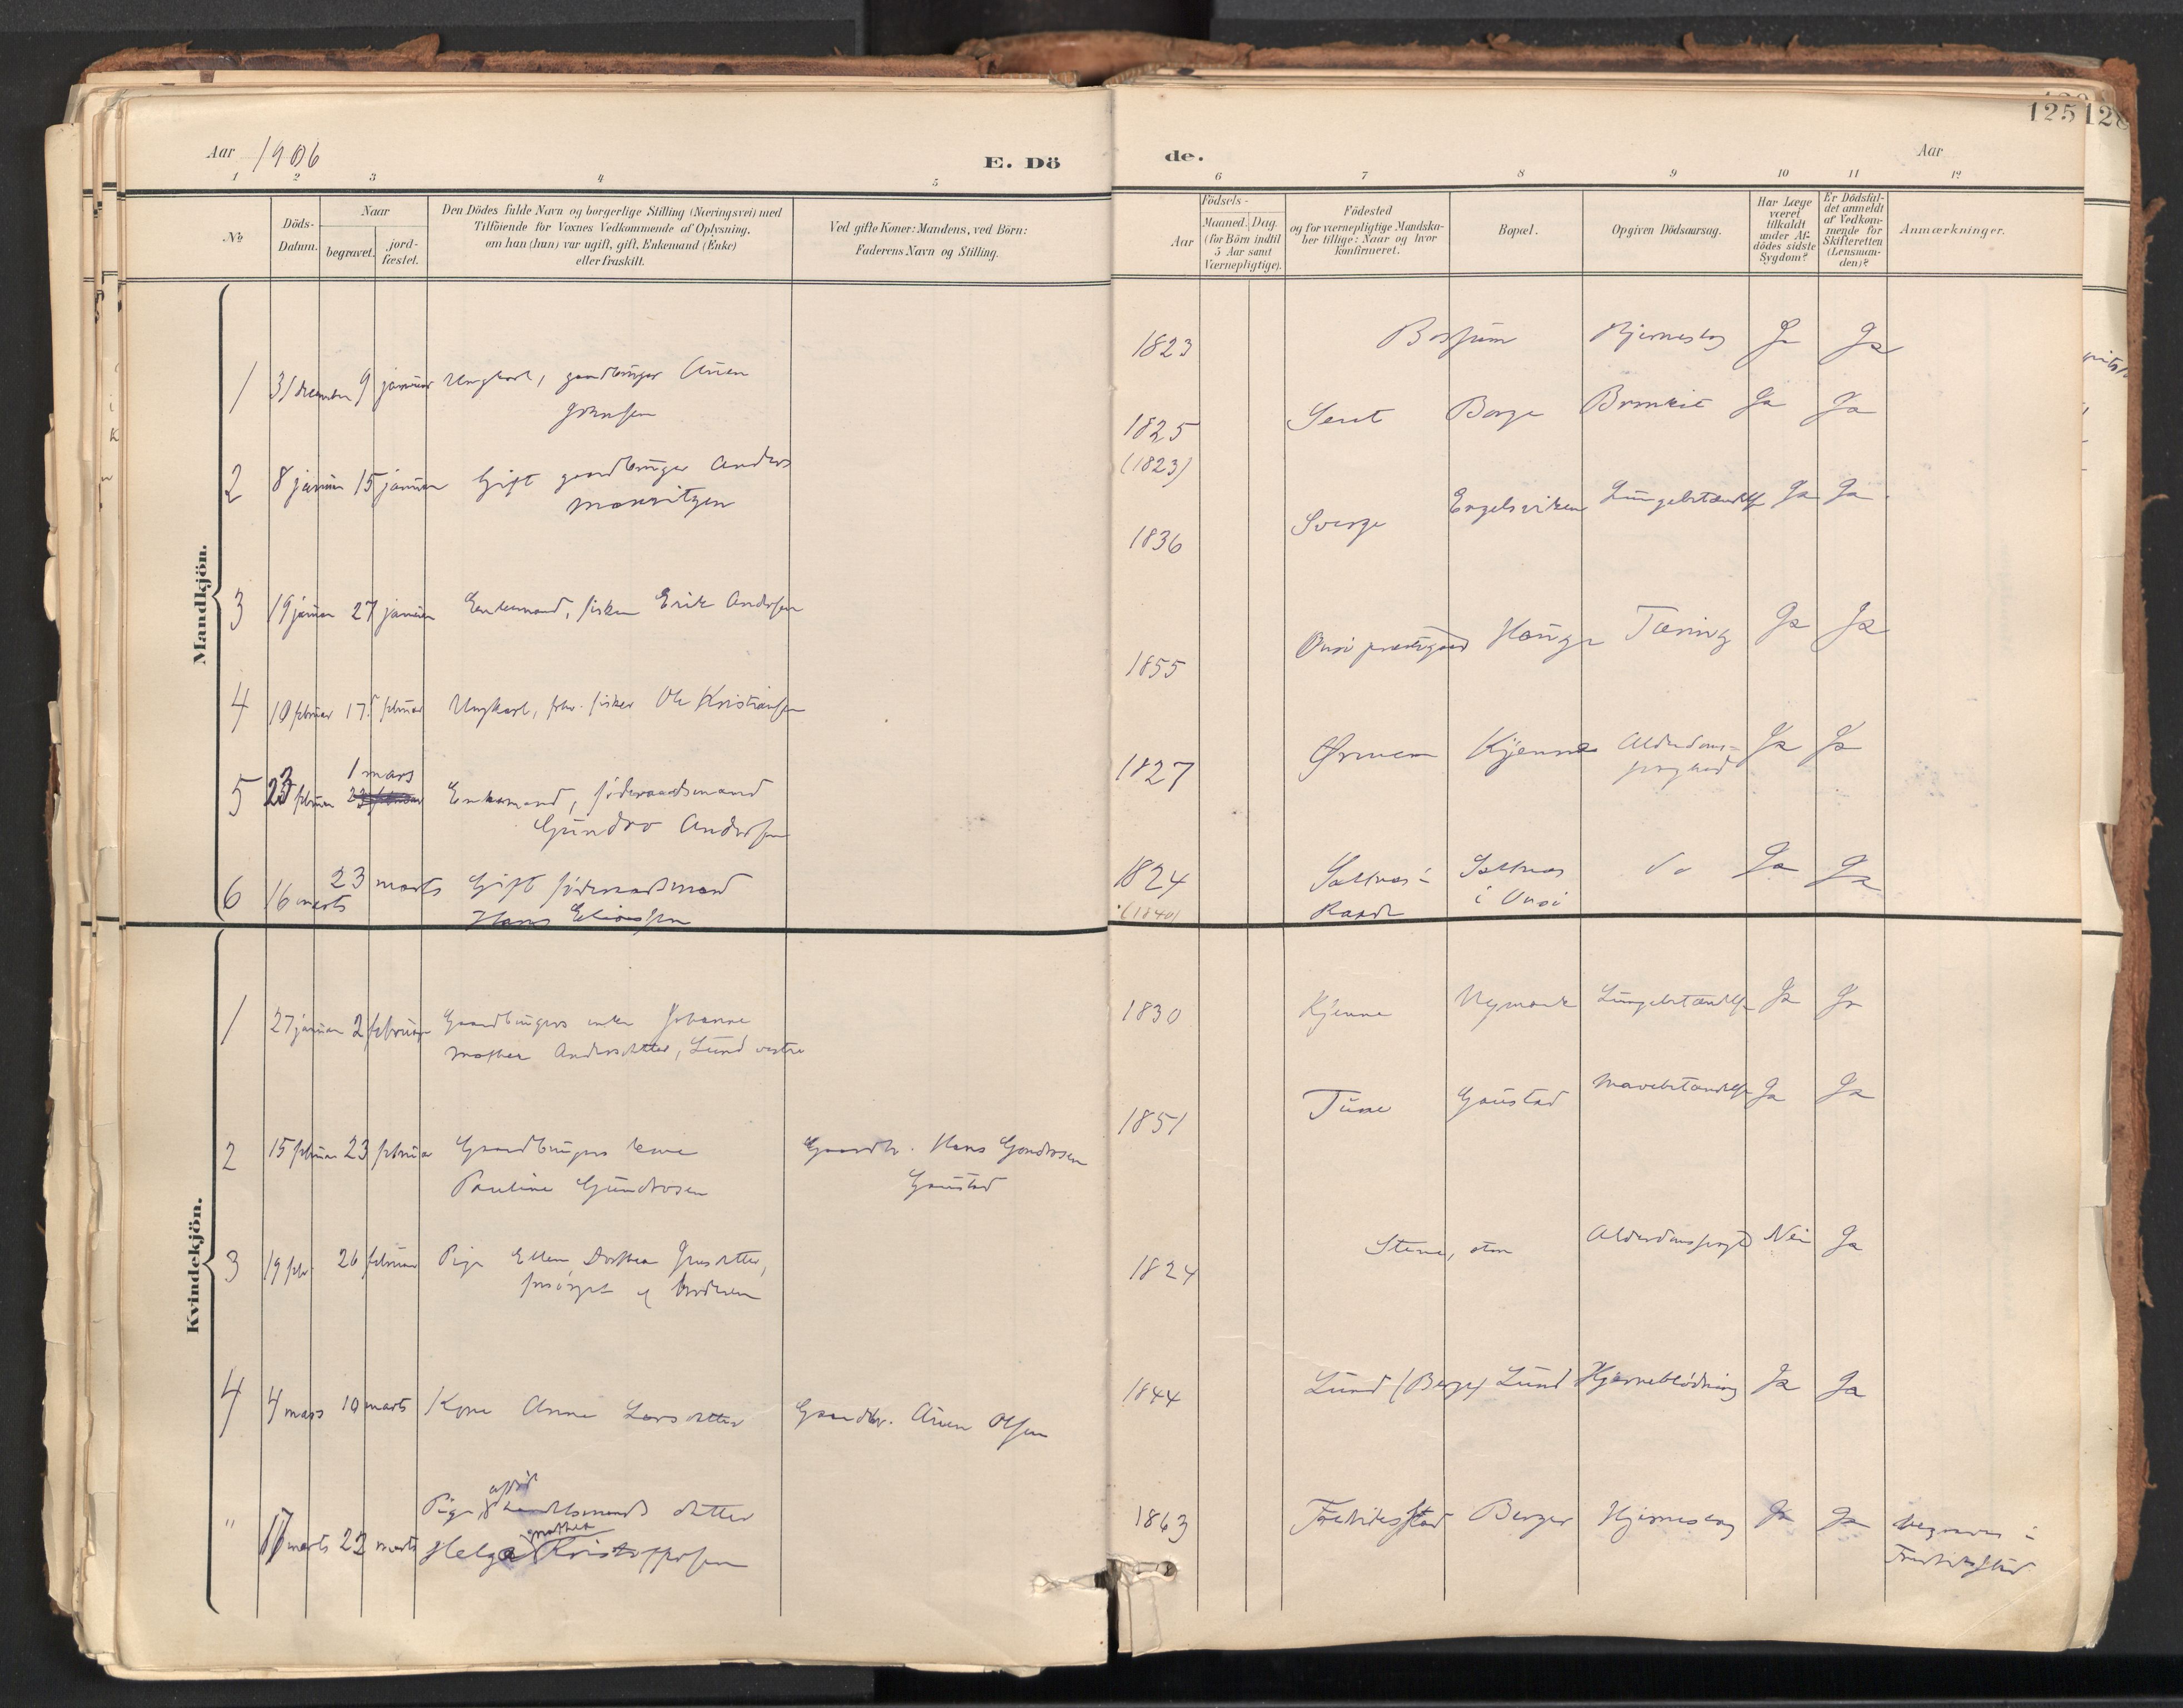 125
128
Aar 1906
E. Dö
de.
Aar
1 2 3 4 5 6 7 8 9 10 11 12
№
Döds-
Datum.
Naar
begravet.
jord-
fæstet.
Den Dödes fulde Navn og borgerlige Stilling (Næringsvei) med
Tilföiende for Voxnes Vedkommende af Oplysning,
om han (hun) var ugift, gift, Enkemand (Enke)
eller fraskilt.
Ved gifte Koner: Mandens, ved Börn:
Faderens Navn og Stilling.
Födsels-
Aar
Maaned. Dag.
(for Börn indtil
5 Aar samt
Værnepligtige).
Födested
og for værnepligtige Mandska-
ber tillige: Naar og hvor
konfirmeret.
Bopæl.
Opgiven Dödsaarsag.
Har Læge
været
tilkaldt
under Af-
dödes sidste
Sygdom?
Er Dödsfal-
det anmeldt
af Vedkom-
mende for
Skifteretten
(Lensman-
den)?
Anmærkninger.
Mandkjön.
1 31 december 9 januar Ungkarl, gaardbruger Auen
Johnsen
1823 Hjerneslag Ja Ja
2 8 januar 15 januar Gift gaardbruger Anders
Mauritzen
1825
(1823)
Borge Bronkit Ja Ja
3 19 januar 27 januar Enkemand, fisker Erik Andersen
1836 Sverge Engelsviken Lungebetændelse Ja Ja
4 10 februar 17 februar Ungkarl, fhv. fisker Ole Kristiansen
1855 Onsø prestegaard Hauge Tæring Ja Ja
5 23 februar 1 mars Enkemand, föderaadsmand
Gundro Andersen
1827 Kjenne Alderdoms-
svaghed Ja Ja
6 16 marts 23 marts Gift föderaadsmand
Hans Eliassen
1824
(1840)
Saltnes i
Raade
Saltnes
i Onsö
do Ja Ja
Kvindekjön.
1 27 januar 2 februar Gaardbrugers enke Johanne
Mathea Andersdatter, Lund vestre
1830 Kjenne Nymark Lungebetændelse Ja Ja
2 15 februar 23 februar Gaardbrugers kone
Pauline Gundrosen
Gaardbr. Hans Gundrosen
Gaustad
1851 Tune Gaustad Mavebetændelse Ja Ja
3 19 febr. 26 februar Pige Ellen Dorthea Jensdatter,
forsörget af broderen
1824 Stene, Alderdomssvaghed Nei Ja
4 4 mars 10 marts Kone Anne Larsdatter Gaardbr. Auen Olsen
1844 Lund (Berge) Lund Hjerneblödning Ja Ja
" 17 marts 22 marts Pige, afdöd handelsmands datter
Helga Mathea Kristoffersen
1863 Fredriksstad Berger Hjerneslag Ja Ja begraves i
Fredriksstad